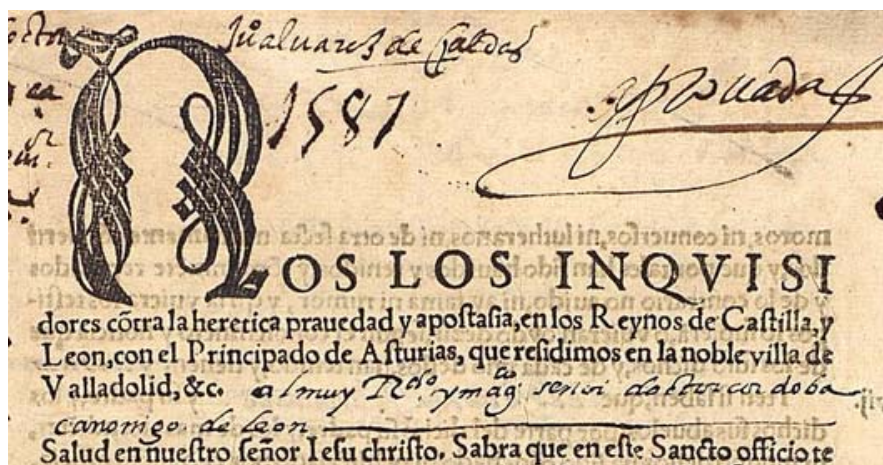 Juº aluarez de Caldas
1587
aprouada
NOS LOS INQVISI
dores cõtra la heretica prauedad y apostasia, en los Reynos de Castilla, y
Leon, con el Principado de Asturias, que residimos en la noble villa de
Valladolid, &c. al muy Rdo. y magco señor doctor cordoba
canonigo de leon
Salud en nuestro señor Iesu christo. Sabra que en este Sancto officio te